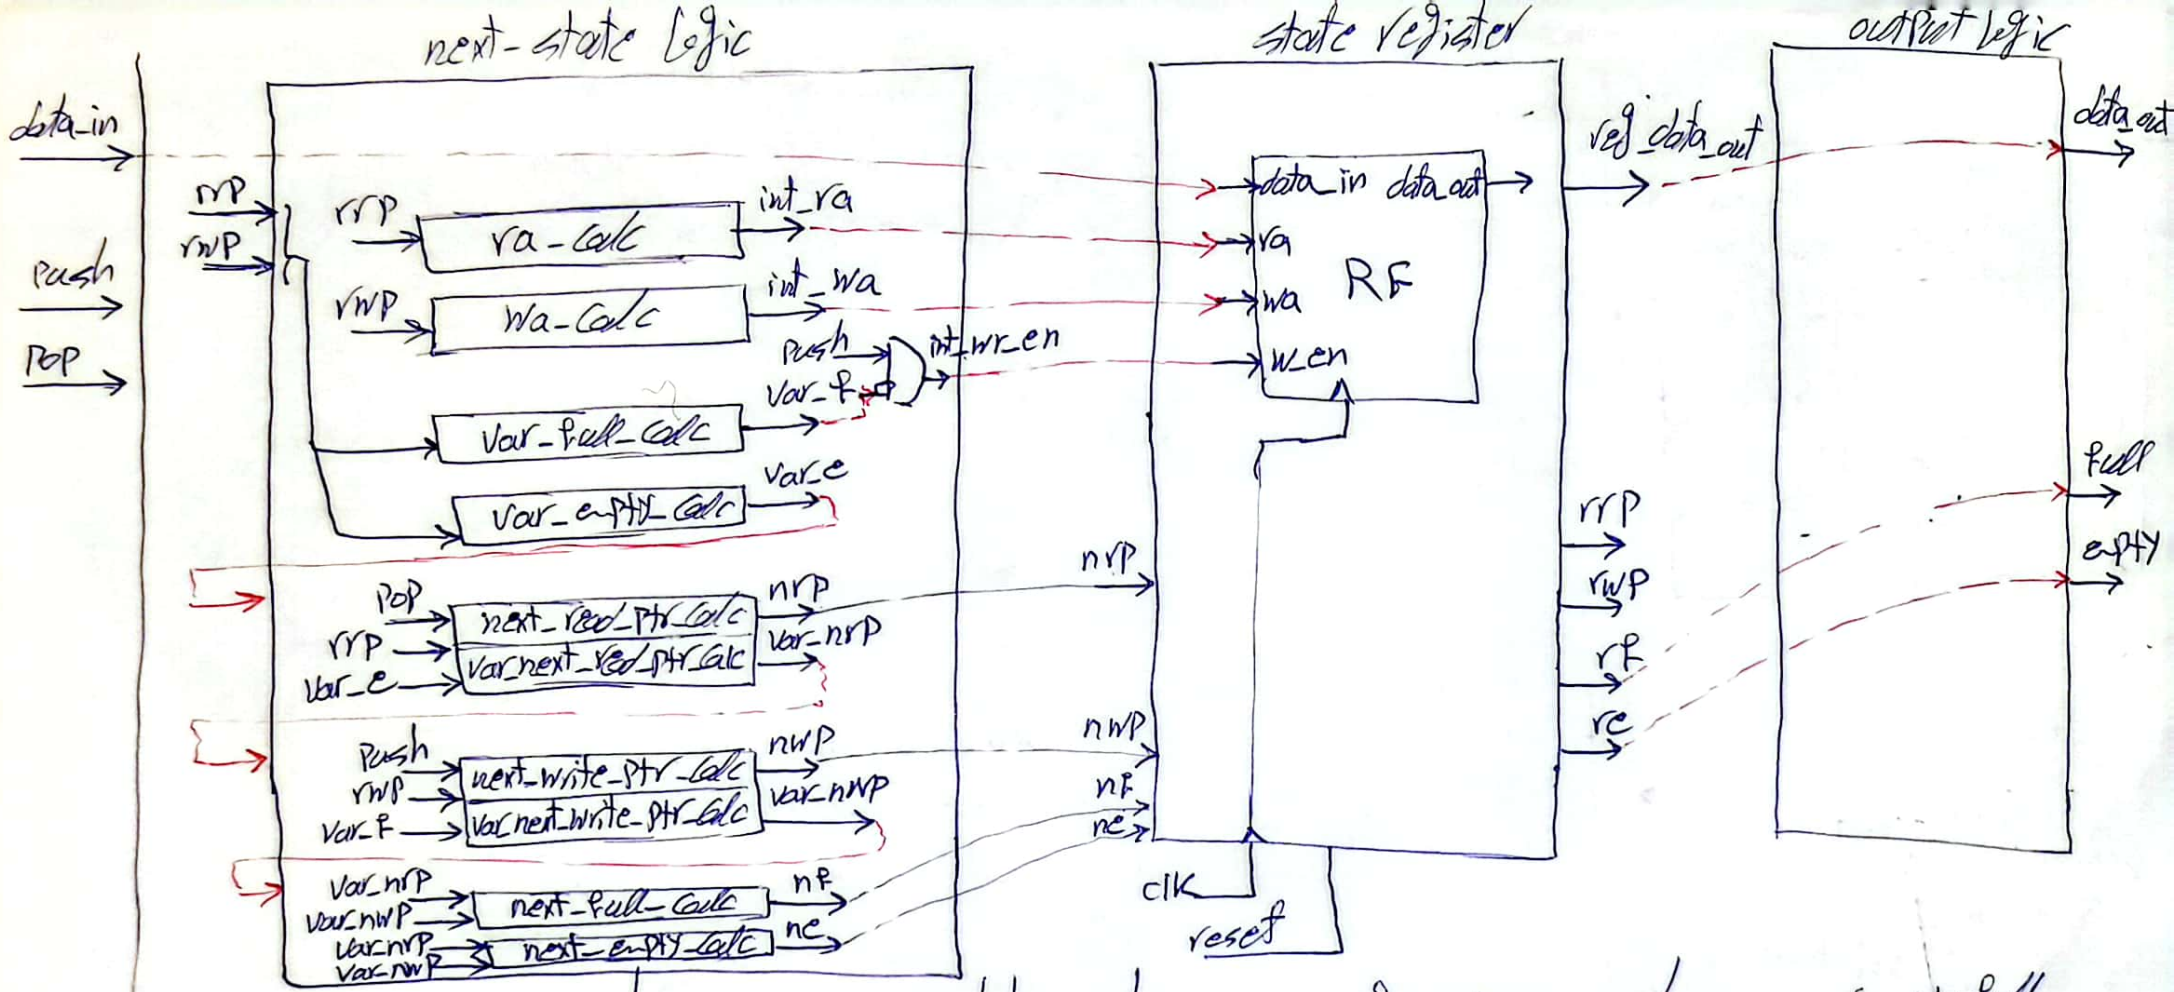 next-state logic
state register
output logic
data_in
push
pop
rrp
rwp
rrp
ra-calc
int_ra
rwp
wa-calc
int_wa
push
var_f
int_wr_en
var_full_calc
var_empty_calc
var_e
pop
rrp
var_e
next_read_ptr_calc
var_next_read_ptr_calc
nrp
var_nrp
push
rwp
var_f
next_write_ptr_calc
var_next_write_ptr_calc
nwp
var_nwp
var_nrp
var_nwp
next_full_calc
nf
var_nrp
var_nwp
next_empty_calc
ne
data_in data_out
ra
RF
wa
w_en
nrp
nwp
nf
ne
clk
reset
reg_data_out
rrp
rwp
rf
re
data_out
full
empty